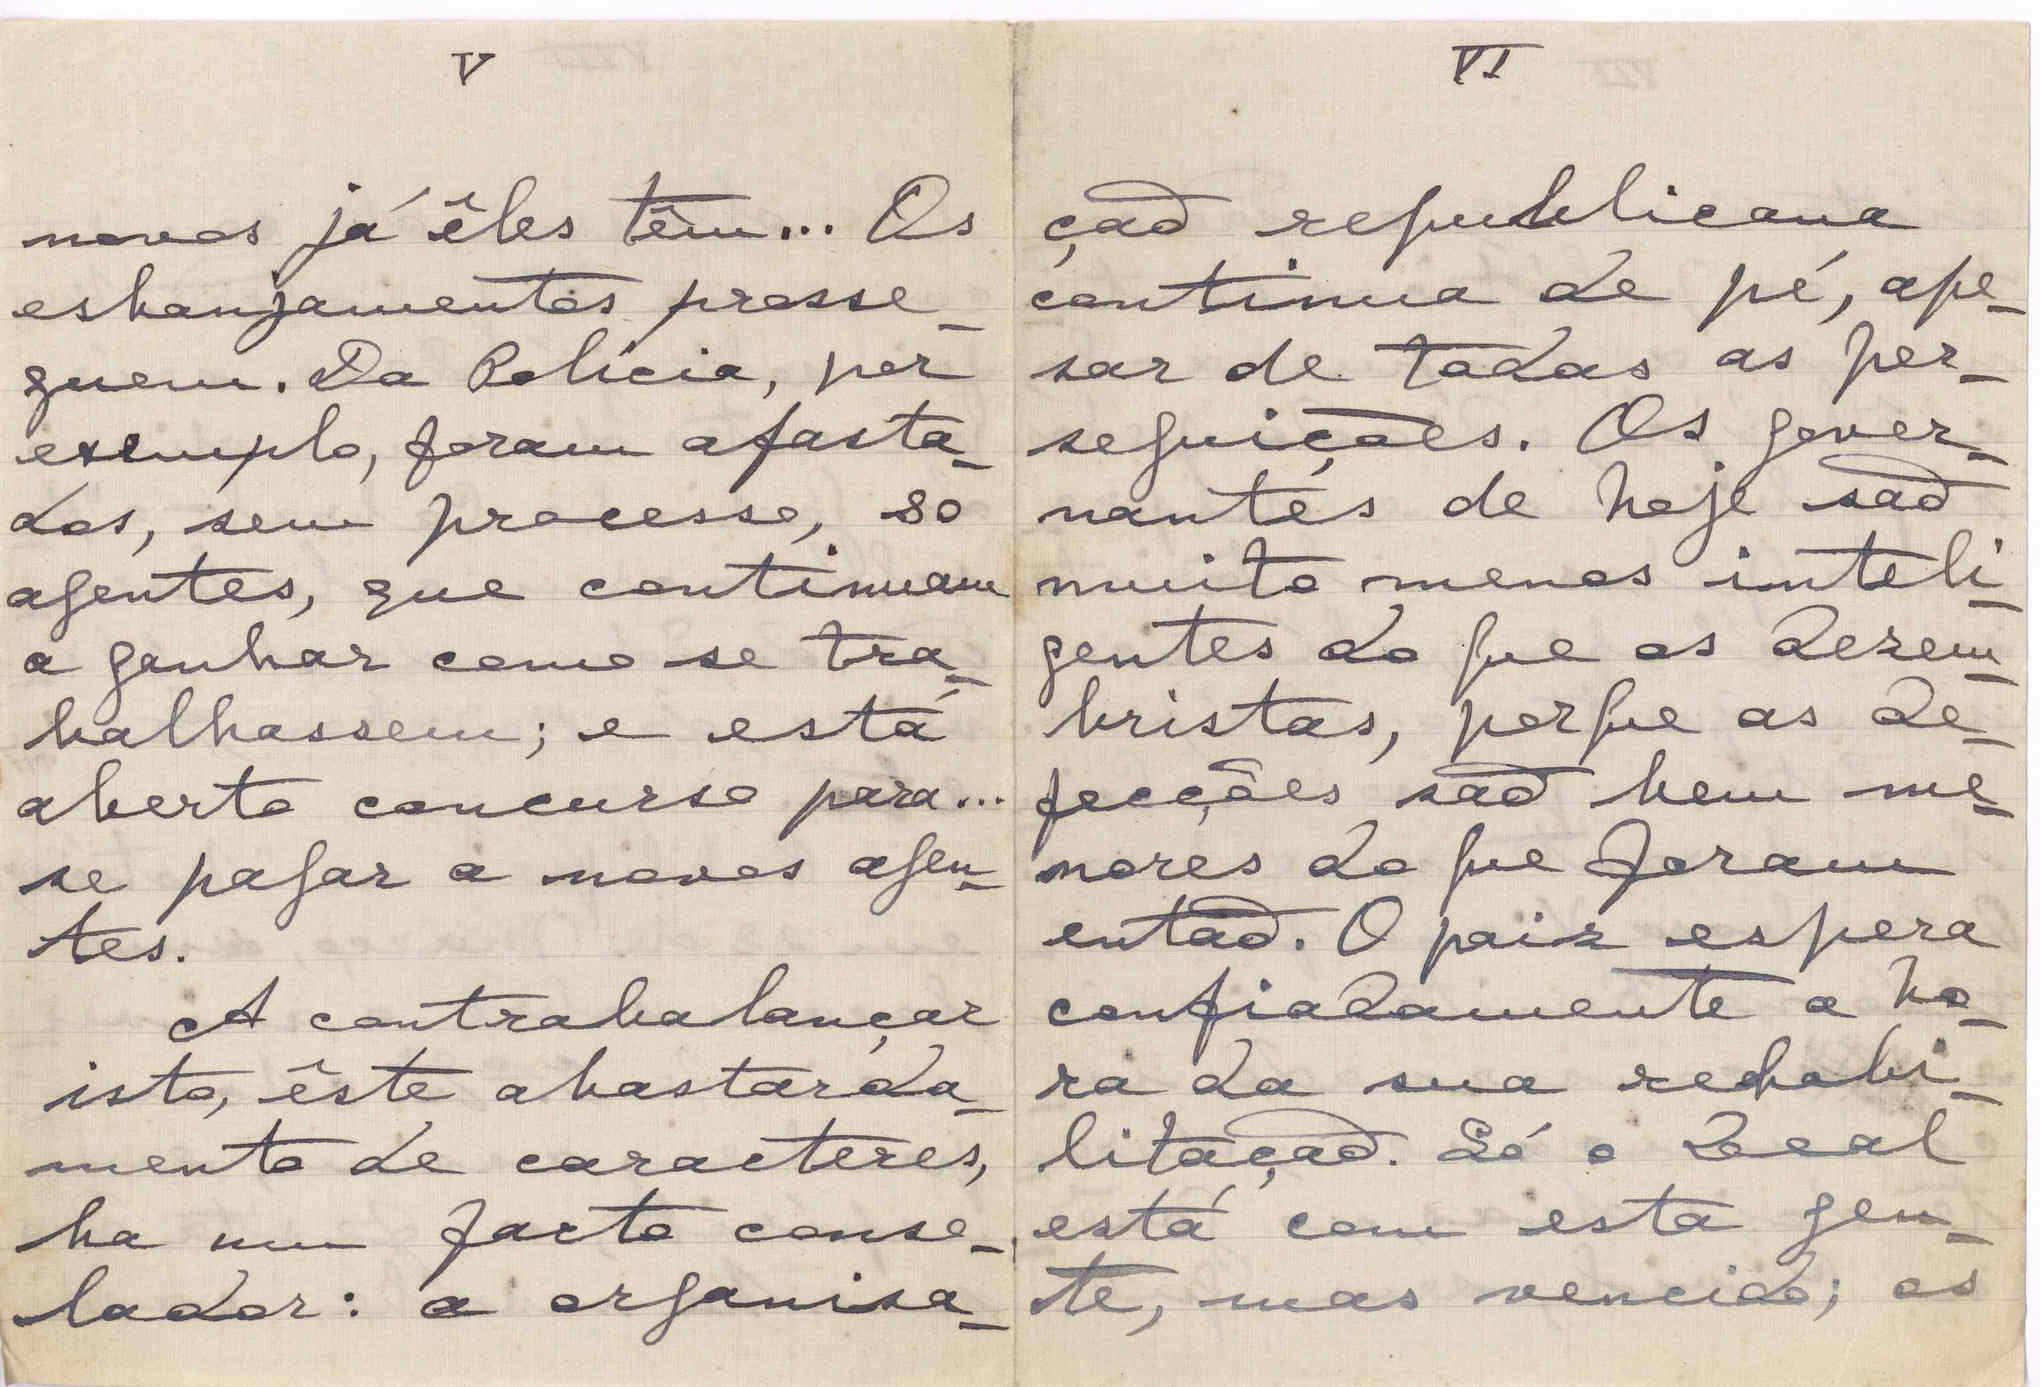 V
novos já êles têm... Os
esbanjamentos prosse-
guem. Da Policia, por
exemplo, foram afasta-
dos, sem processo, 80
agentes, que continuam
a ganhar como se tra-
balhassem; e está
aberto concurso para...
se pagar a novos agen-
tes.
A contrabalançar
isto, êste abastarda-
mento de caracteres,
ha um facto conso-
lador: a organisa-
VI
ção republicana
continua de pé, ape-
sar de todas as per-
seguições. Os gover-
nantes de hoje são
muito menos inteli-
gentes do que os dezem-
bristas, porque as de-
fecções são bem me-
nores do que foram
então. O paiz espera
confiadamente a ho-
ra da sua rehabi-
litação. Só o Leal
está com esta gen-
te, mas vencido; os